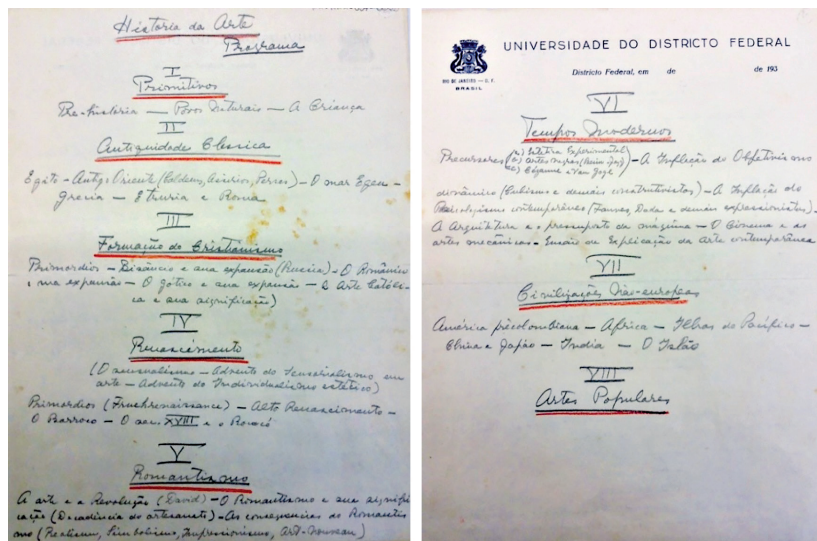 Historia da Arte
Programa
I
Primitivos
Pre-historia — Povos Naturais — A Criança
II
Antiguidade Classica
Egito - Antigo Oriente (Caldeus, Assirios, Persas) - O mar Egeu -
Grecia - Etruria e Roma
III
Formação do Cristianismo
Primordios - Bisâncio e sua expansão (Russia) - O Românico
e sua expansão - O gotico e sua expansão - A Arte Católi-
ca e sua significação)
IV
Renascimento
(O sensualismo - Advento do sensorialismo em
arte - Advento do Individualismo estético)
Primordios (Fruehrenaissance) - Alto Renascimento -
O Barroco - O sec. XVIII e o Rococó
V
Romantismo
A arte e a Revolução (David) - O Romantismo e sua signifi-
cação (Decadência do artesanato) - As consequencias do Romantis
mo (Realismo, Simbolismo, Impressionismo, Art-Nouveau)
UNIVERSIDADE DO DISTRICTO FEDERAL
RIO DE JANEIRO - D. F.
BRASIL
Districto Federal, em de de 193
VI
Tempos Modernos
Precursores (a) Estetica Experimental
(b) Artes Negras
(c) Cézanne e Van Gogh) - A Inflação do Objetivismo
dinâmico (Cubismo e demais construtivistas) - A Inflação do
Psicologismo contemporâneo (Fauves, Dada e demais expressionistas) -
A Arquitetura e o pressuposto da máquina - O Cinema e as
artes mecânicas - Ensaio de Explicação da Arte contemporânea
VII
Civilizações Não-européas
América précolombiana - Africa - Ilhas do Pacífico -
China e Japão - India - O Islão
VIII
Artes Populares